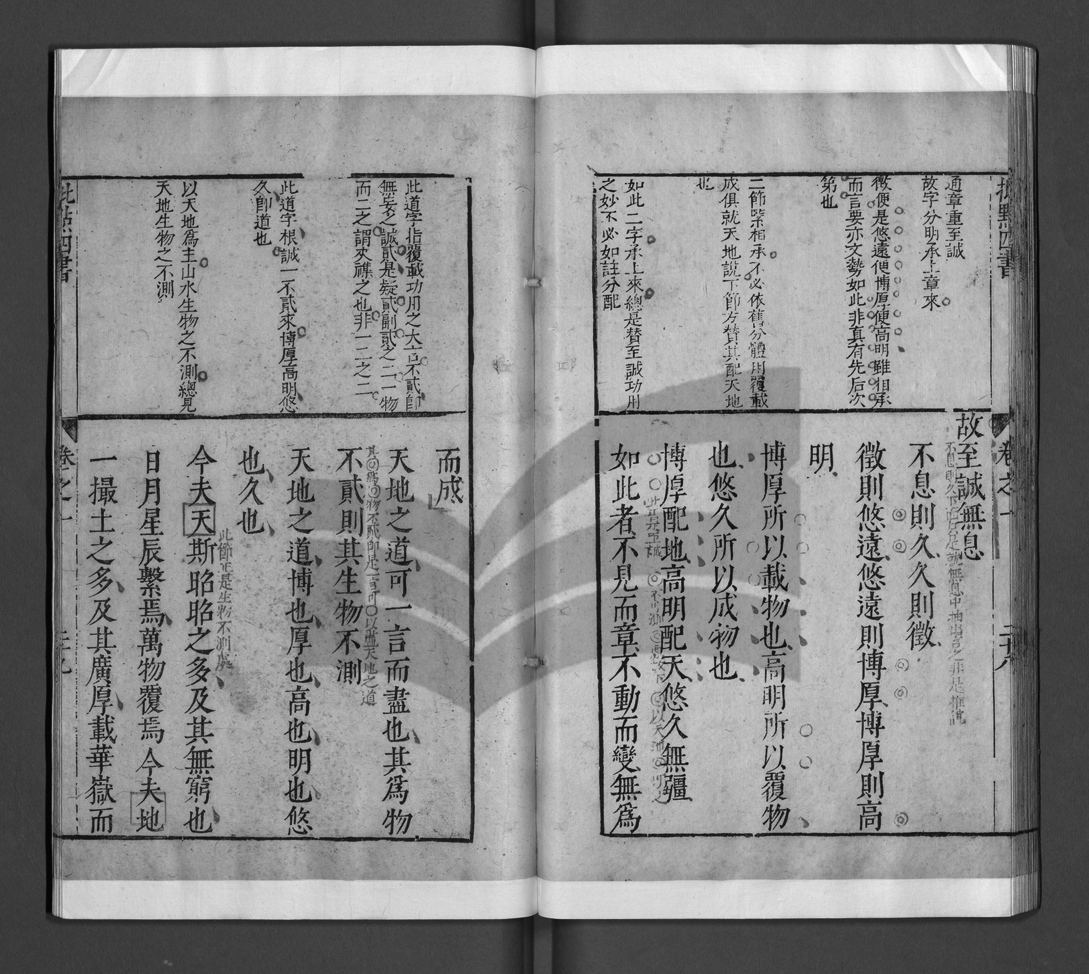 通章重至誠
故字分明承上章來
徵便是悠遠便博厚便高明雖相承
而言要亦文勢如此非真有先后次
第也
二節緊相承不必依舊分體用覆載
成俱就天地說下節方贊其配天地
也
如此二字承上來總是替至誠功用
之妙不必如註分配
故至誠無息
不息則久久則徵
徵則悠遠悠遠則博厚博厚則高
明
博厚所以載物也高明所以覆物
也悠久所以成物也
博厚配地高明配天悠久無疆
如此者不見而章不動而變無為
卷之一
此道字指覆載功用之大言不貳即
無妄之誠貳是疑貳副貳之二一物
而二之謂夾襍之也非一二之二
此道字根誠一不貳來博厚高明悠
久即道也
以天地為主山水生物之不測總見
天地生物之不測
而成
天地之道可一言而盡也其為物
不貳則其生物不測
天地之道博也厚也高也明也悠
也久也
此節正是生物不測處
今夫天斯昭昭之多及其無窮也
日月星辰繫焉萬物覆焉今夫地
一撮土之多及其廣厚載華嶽而
批點四書
卷之一